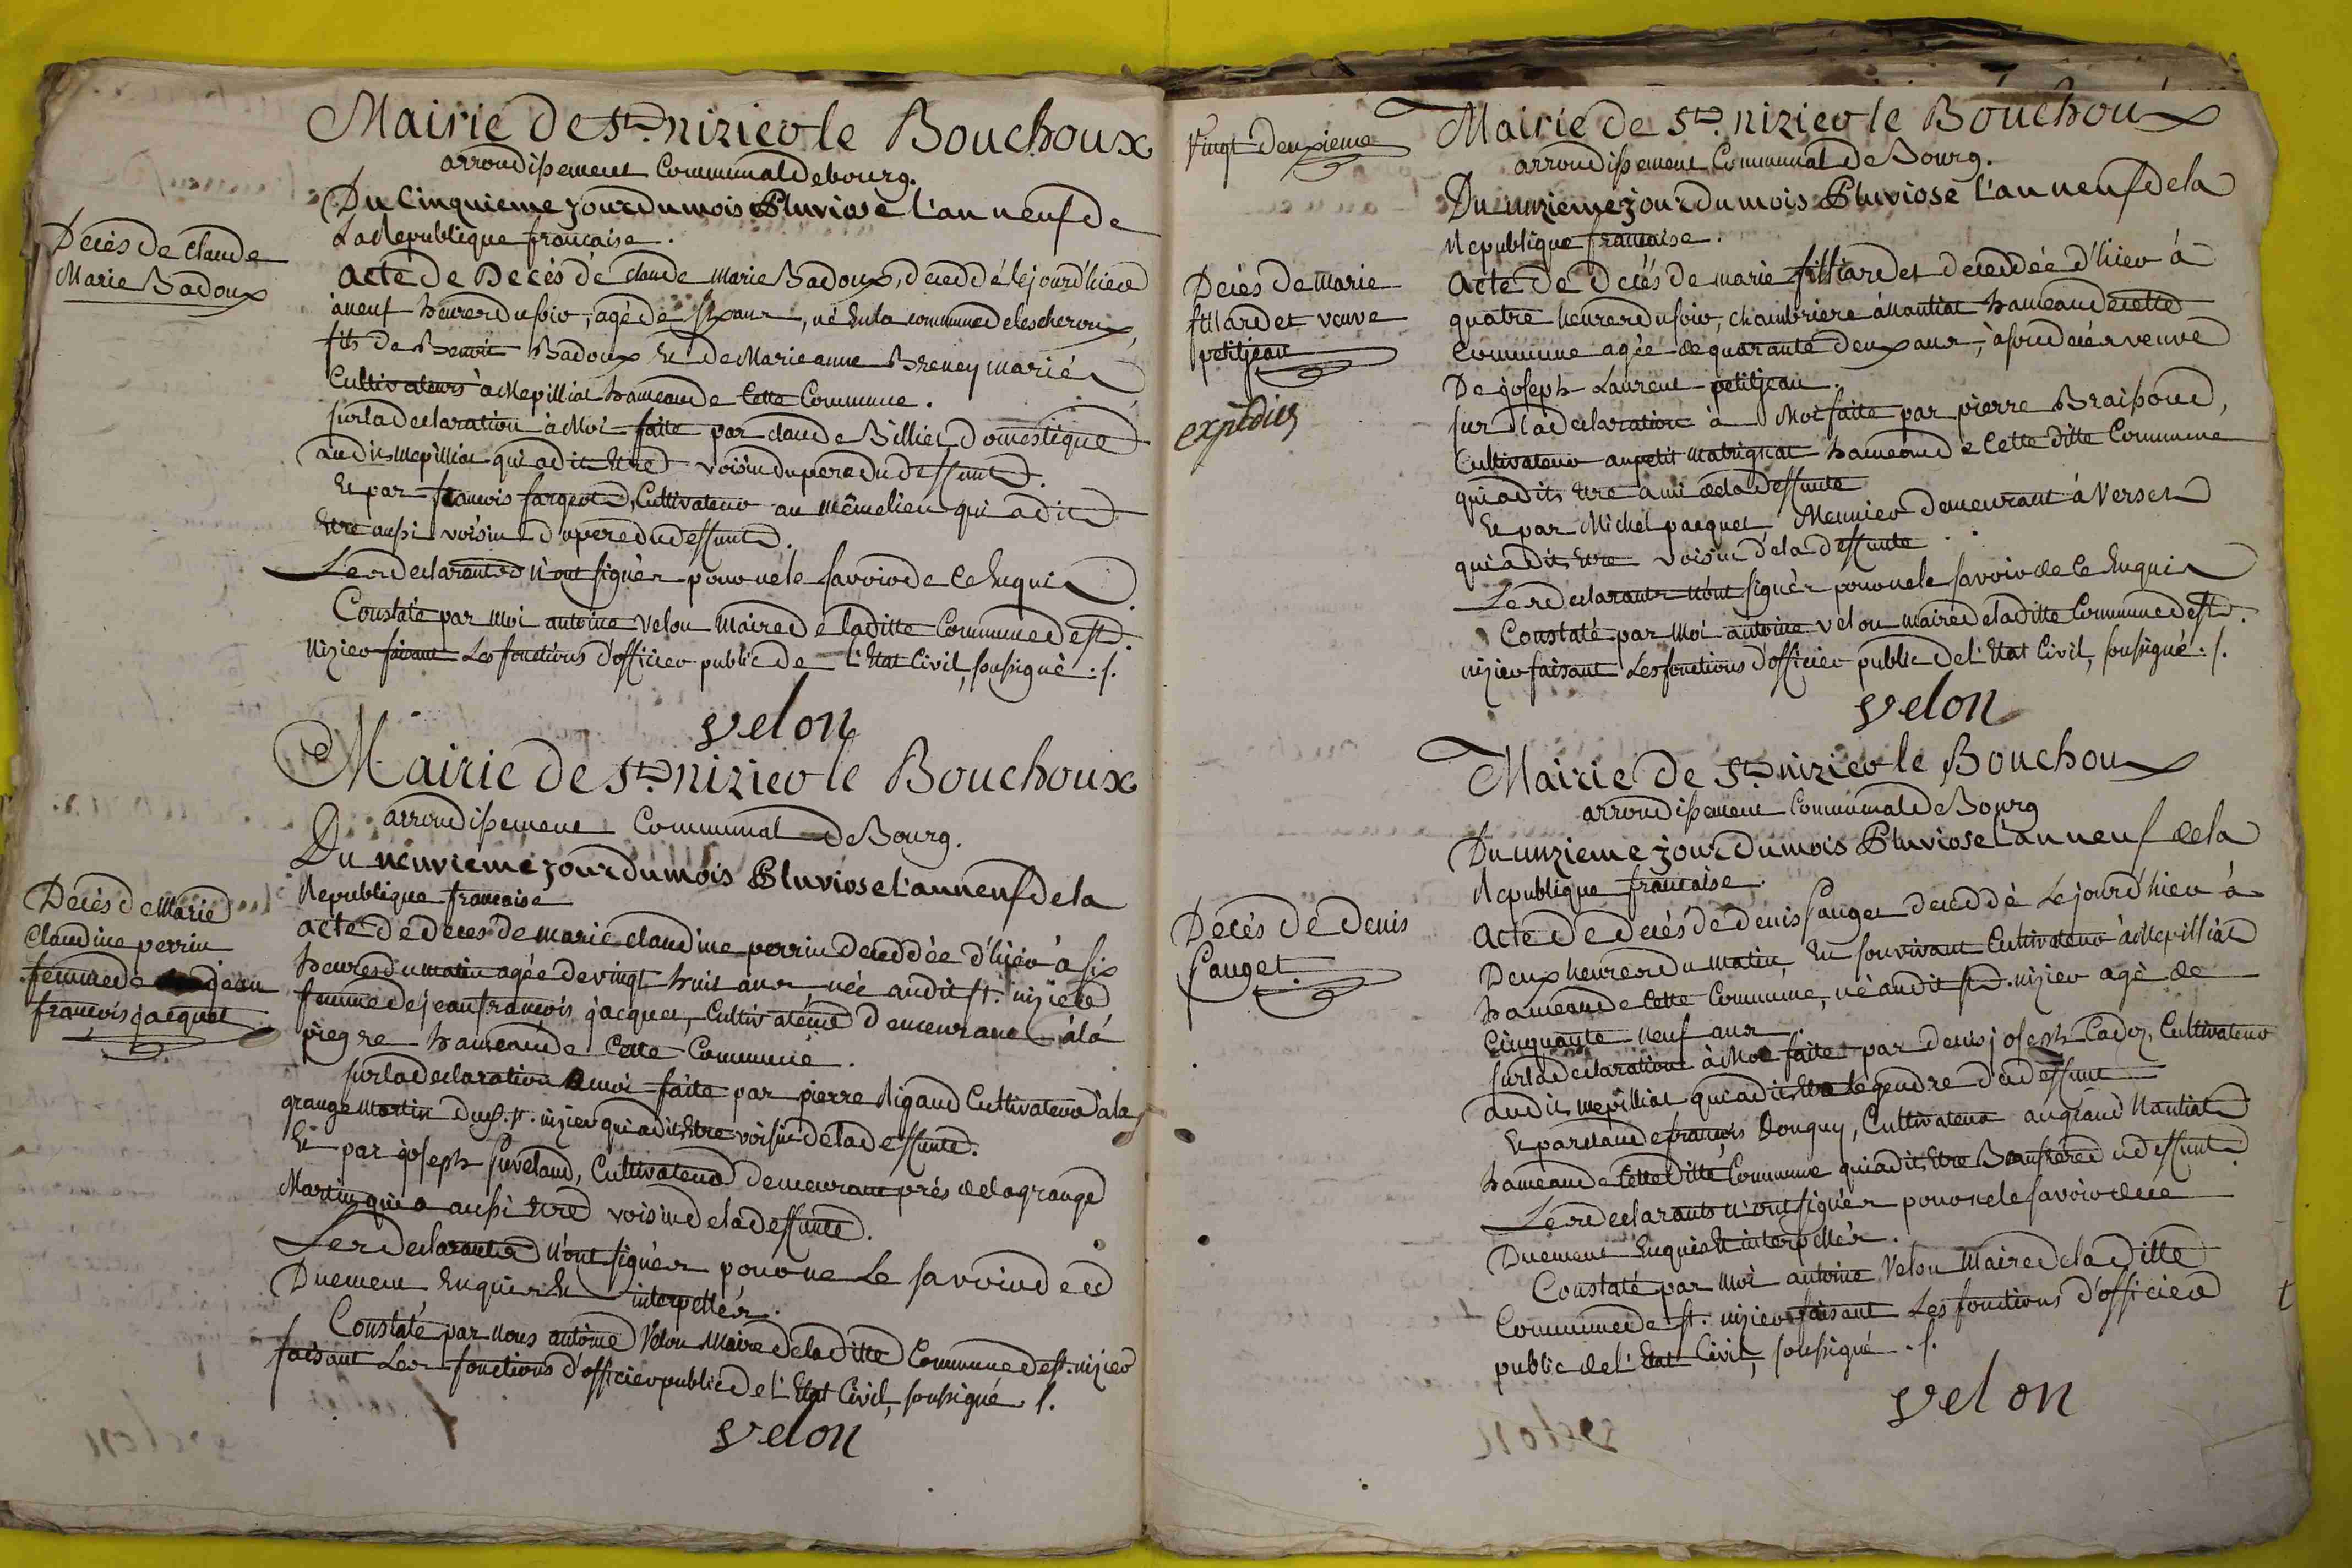 Mairie de St. nizier le Bouchoux
arrondissement Communal de bourg.
Du Cinquieme jour du mois Pluviose l'an neuf de
La Republique française.
Décès de claude
Marie Badoux
acte de Decès de claude marie Badoux, décédé le jour d'hier
à neuf heures du soir, agé de six ans, né En la commune de lescheroux,
fils de Benoit Badoux Et de Marie anne Breney mariés
Cultivateurs à Mepilliat hameau de Cette Commune.
sur la declaration à Moi faite par claude Billiet Domestique
audit mepilliat qui a dit Etre voisin du pere du deffunt.
Et par francois fargeot, Cultivateur au même lieu qui a dit
Etre aussi voisin du pere du deffunt.
Les declarants n'ont signés pour ne le savoir de ce Enquis
Constaté par Moi antoine velon maire de laditte Commune de st.
nizier faisant Les fonctions d'officier public de l'Etat Civil, soussigné :/.
velon
Mairie de St. nizier le Bouchoux
arrondissement Communal de Bourg.
Du neuvieme jour du mois Pluviose l'an neuf de la
Republique francaise
Décès de Marie
Claudine perrin
femme de jean
françois jacquet
acte de deces de marie claudine perrin décédée d'hier à six
heures du matin agée de vingt huit ans née audit st. nizier
femme de jean francois jacquet, Cultivateur demeurant à la
piegre hameau de Cette Commune.
sur la declaration a moi faite par pierre Rigaud Cultivateur à la
grange martin dud. st. nizier qui a dit Etre voisin de la deffunte.
Et par joseph Cultivateur demeurant près de la grange
Martin qui a aussi Etre voisin de la deffunte.
Les declarants n'ont signés pour ne Le savoir de ce
Duement Enquis Et interpellés.
Constaté par nous antoine Velon Maire de laditte Commune de st. nizier
faisant Les fonctions d'officier public de l'Etat Civil, soussigné /.
velon
vingt deuxieme
Mairie de St. nizier le Bouchoux
arrondissement Communal de Bourg.
Du unzieme jour du mois Pluviose l'an neuf de la
Republique francaise.
Décès de Marie
filliardet veuve
petitjean
expédiés
acte de décès de marie filliardet décédée d'hier à
quatre heures du soir, chambriere à Nantiat hameau de cette
Commune agée de quarante deux ans, à son décés veuve
De joseph Laurent petitjean.
sur la declaration à Moi faite par pierre Braissoud,
Cultivateur au petit matrignat hameau de Cette ditte Commune
qui a dit Etre ami de la deffunte
Et par Michel pacquet Meunier demeurant à Verset
qui a dit Etre voisin de la deffunte.
Les declarants n'ont signés pour ne le savoir de ce Enquis
Constaté par Moi antoine velon maire de laditte Commune de st.
nizier faisant Les fonctions d'officier public de l'Etat Civil, soussigné :/.
velon
Mairie de St. nizier le Bouchoux
arrondissement Communal de Bourg
Du unzieme jour du mois Pluviose l'an neuf de la
Republique francaise.
Décès de Denis
Pauget
acte de décés de denis Pauget décédé Le jour d'hier à
Deux heures du matin, En son vivant Cultivateur à Mepilliat
hameau de Cette Commune, né audit st. nizier agé de
Cinquante neuf ans.
sur la declaration à Moi faite par denis joseph Cadoz, Cultivateur
audit mepilliat qui a dit Etre le gendre du deffunt
Et par claude francois Donguy, Cultivateur au grand Nantiat
hameau de Cette ditte Commune qui a dit Etre Beaufrere du deffunt
Les declarants n'ont signés pour ne le savoir de ce
Duement Enquis Et interpellés.
Constaté par Moi antoine Velon Maire de laditte
Commune de st. nizier faisant Les fonctions d'officier
public de l'Etat Civil, soussigné ./.
velon